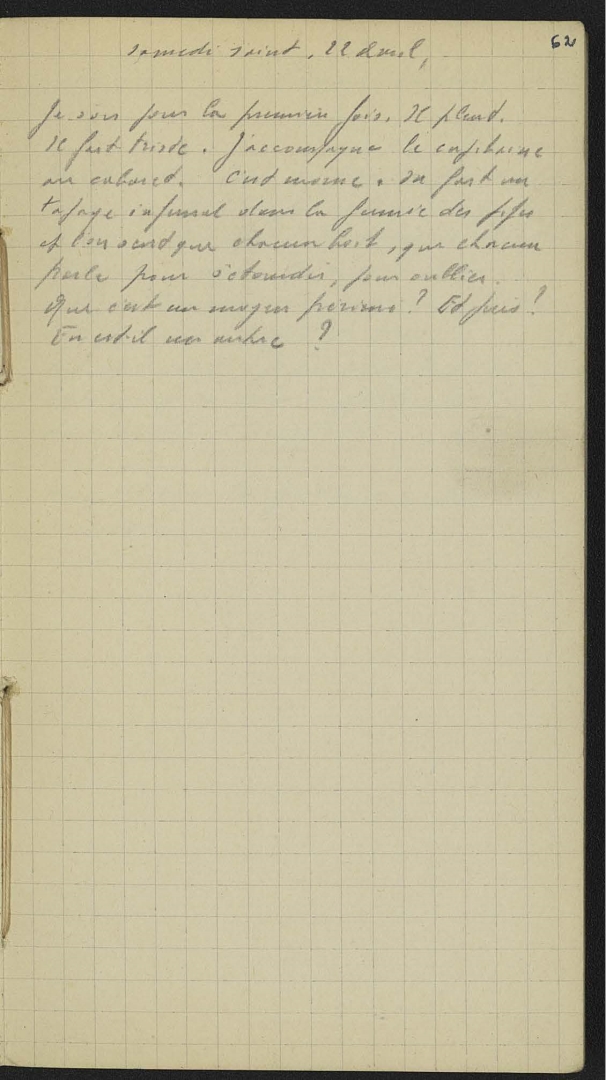 62
samedi saint, 22 avril,
Je sors pour la première fois. Il pleut.
Il fait triste. J'accompagne le capitaine
au cabaret. C'est morne. On fait un
tapage infernal dans la fumée des pipes
et l'on sent que chacun boit, que chacun
parle pour s'étourdir, pour oublier.
Que c'est un moyen ? Et puis ?
En est-il un autre ?